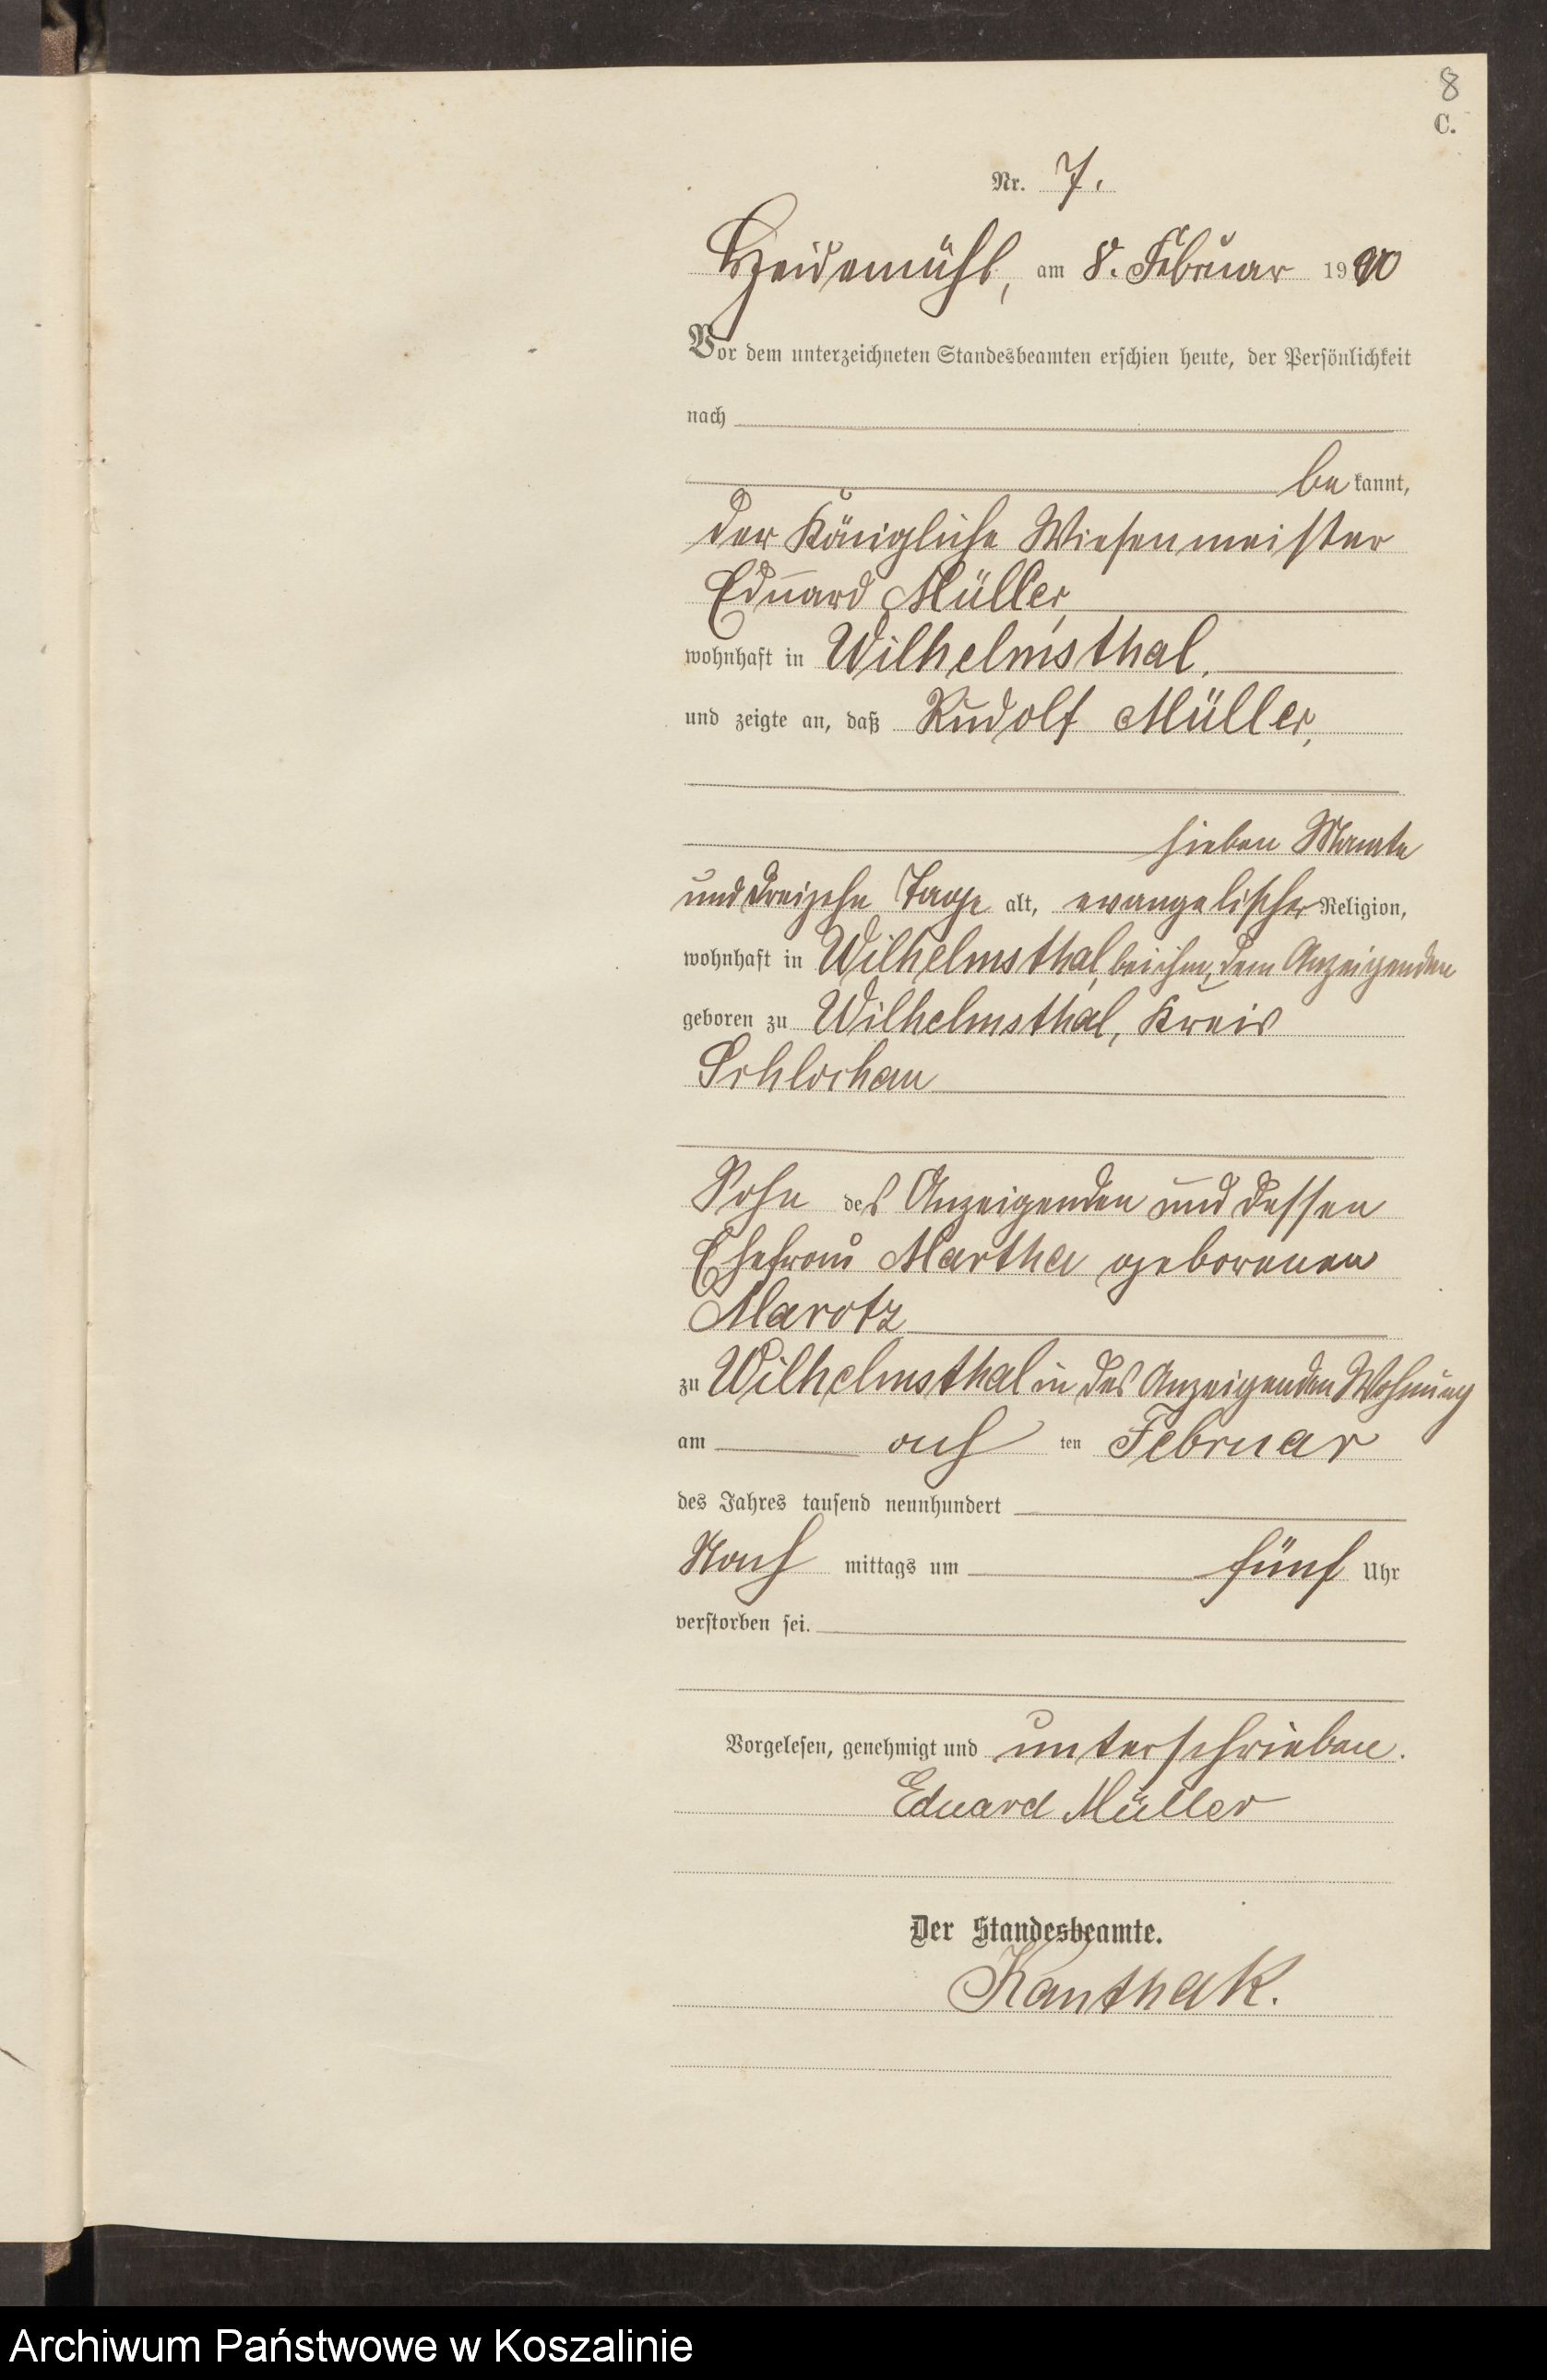 8
C.
Nr. 7.
Heidemühl, am 8. Februar 1900
Vor dem unterzeichneten Standesbeamten erschien heute, der Persönlichkeit
nach
be kannt,
der Königliche Wiesenmeister
Eduard Müller,
wohnhaft in Wilhelmsthal,
und zeigte an, daß Rudolf Müller,
sieben Monate
und dreizehn Tage alt, evangelischer Religion,
wohnhaft in Wilhelmsthal, bei ihm, dem Anzeigenden
geboren zu Wilhelmsthal, Kreis
Schlochau
Sohn des Anzeigenden und dessen
Ehefrau Martha geborenen
Marotz
zu Wilhelmsthal in des Anzeigenden Wohnung
am acht ten Februar
des Jahres tausend neunhundert
Nach mittags um fünf Uhr
verstorben sei.
Vorgelesen, genehmigt und unterschrieben.
Eduard Müller
Der Standesbeamte.
Kanthak.
Archiwum Państwowe w Koszalinie